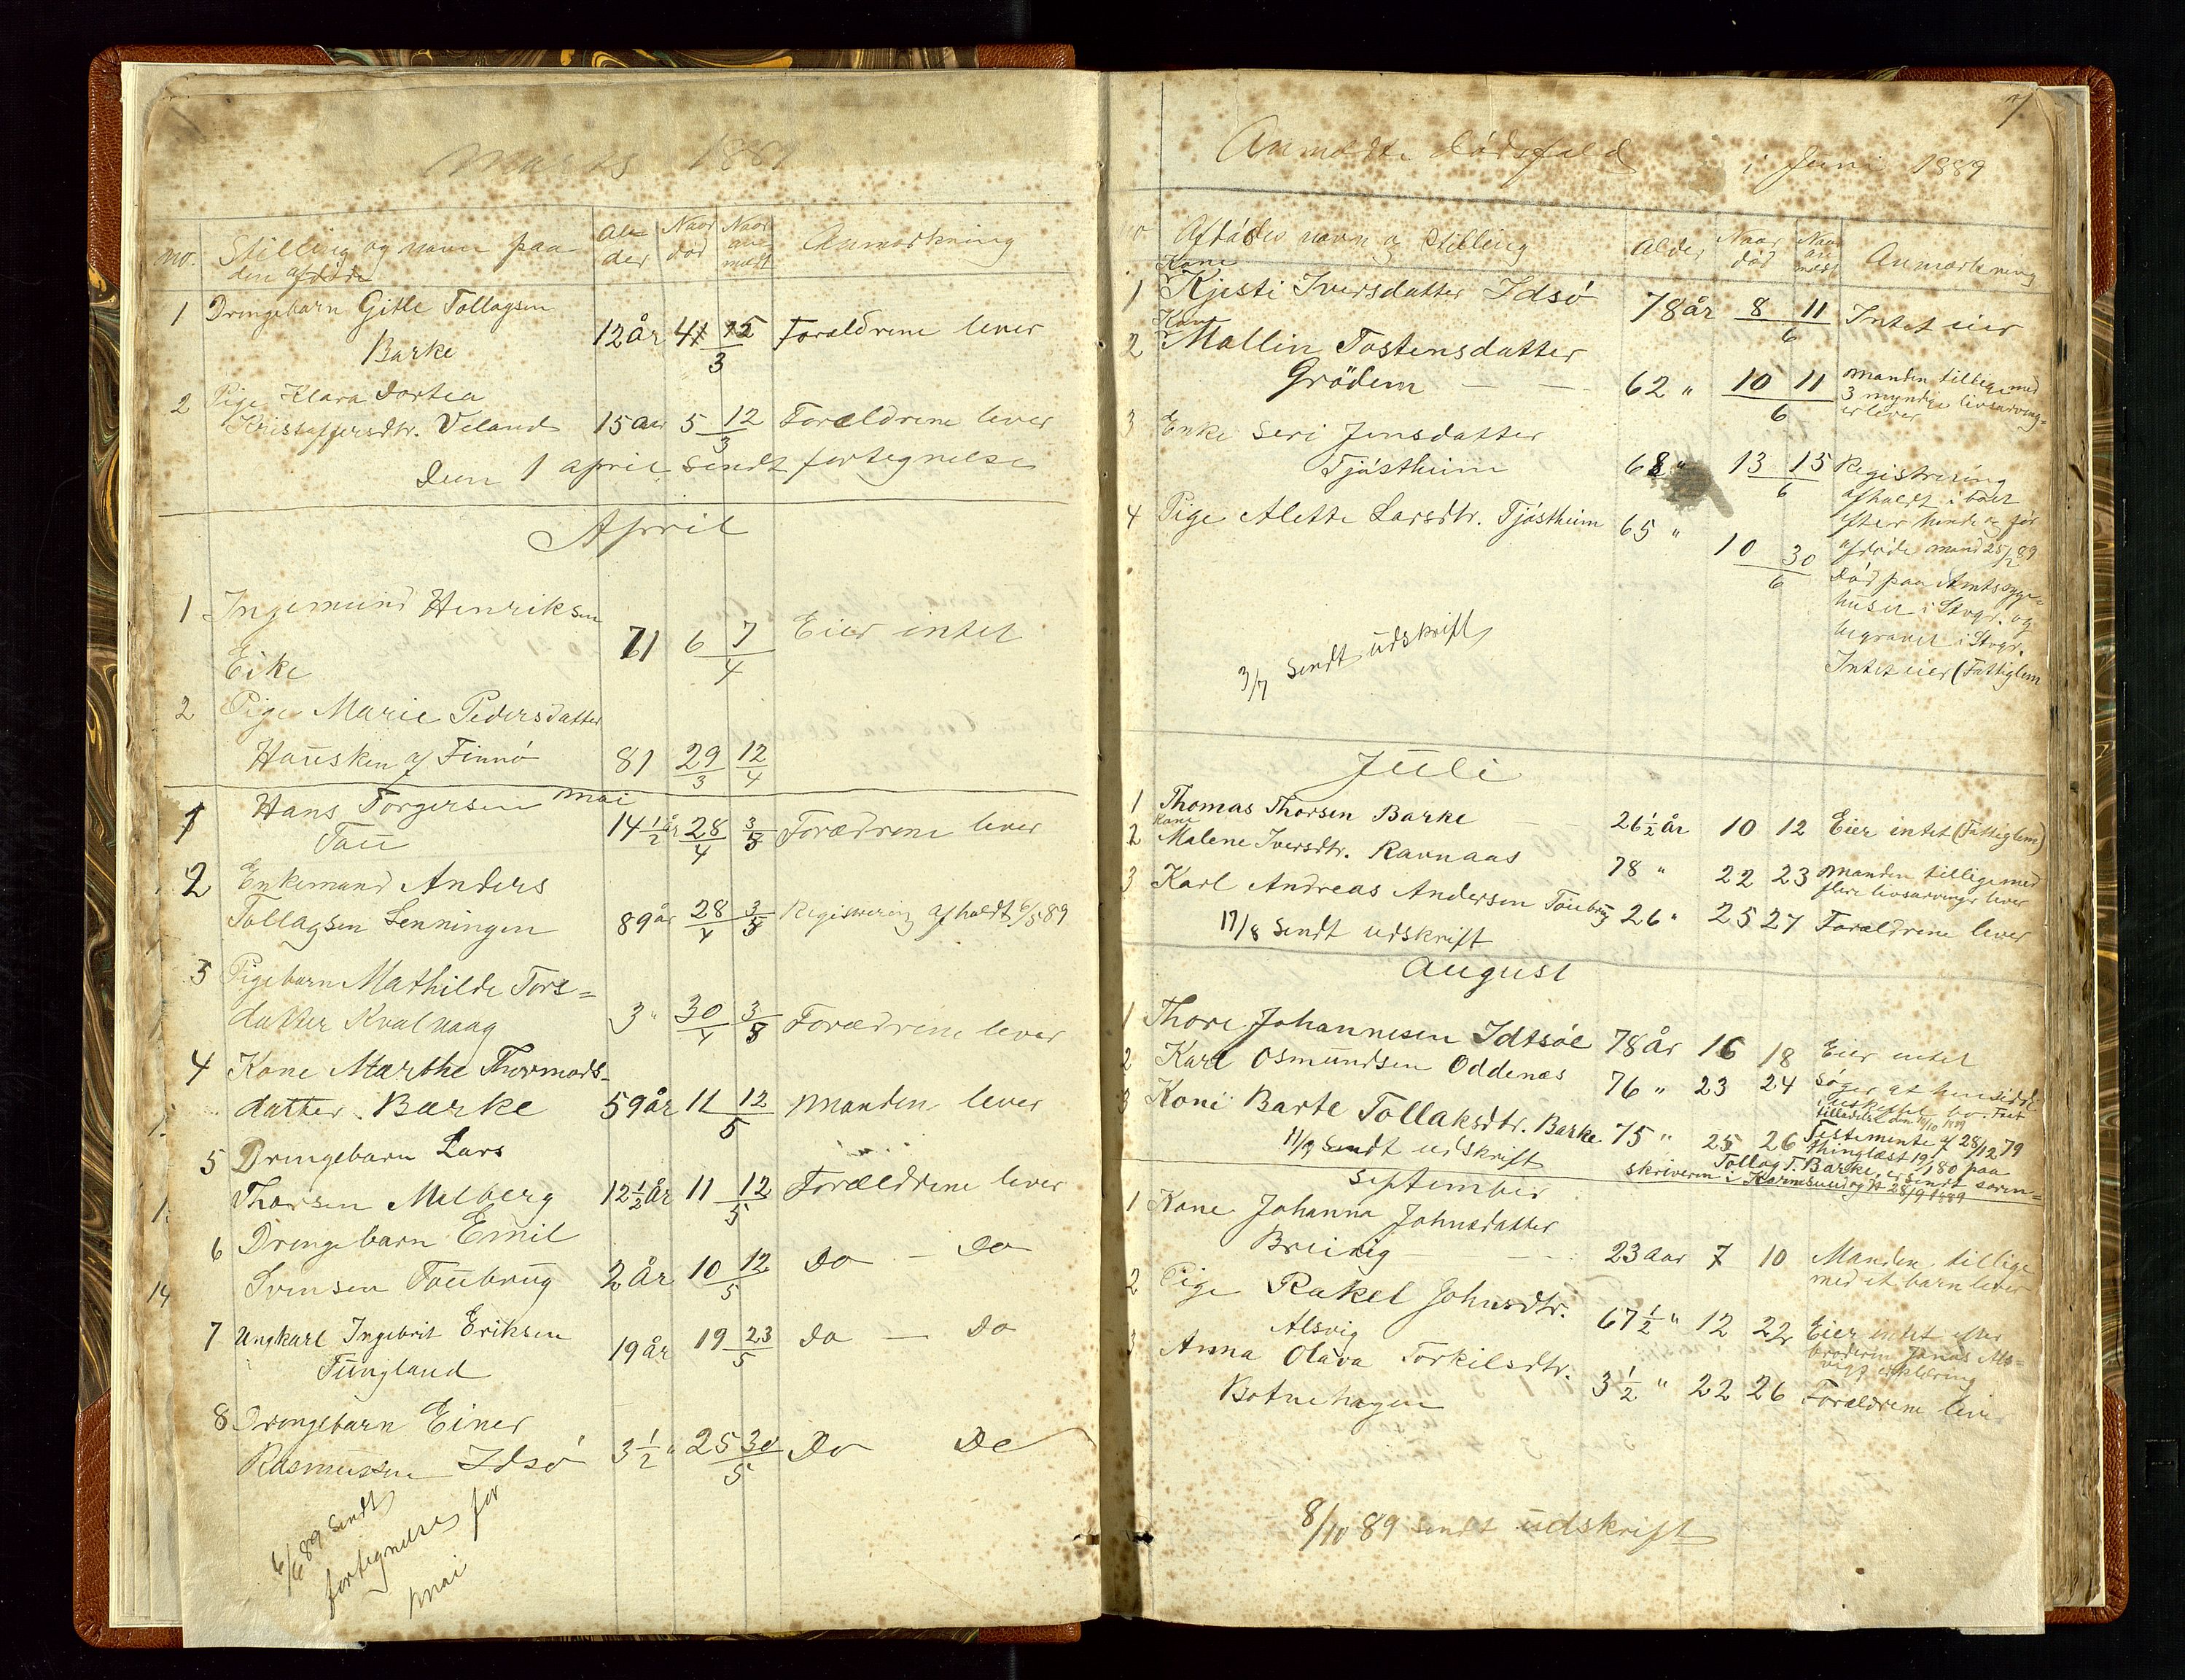 Marts 1889
no. Stilling og navn paa den afdøde Alder Naar død Naar anmeldt Anmærkning
1 Drengebarn Gitle Tollagsen
Barke 12 år 4 12/3 Forældrene lever
2 Pige Klara Dortea
Kristoffersdtr. Veland 15 aar 5 12/3 Forældrene lever
Den 1 april sendt fortegnelse
April
1 Ingemund Henriksen
Eike 71 6 7/4 Eier intet
2 Pige Marie Pedersdatter
Hausken af Finnø 81 29/3 12/4
mai
1 Hans Torgersen
Tau 14 1/2 år 28/4 3/5 Forældrene lever
2 Enkemand Anders
Tollagsen Lenningen 89 år 28/4 3/5 Registrering afholdt 6/5 89
3 Pigebarn Mathilde Tors=
datter Kvalvaag 3 " 30/4 3/5 Forældrene lever
4 Kone Marthe Thormods-
datter Barke 59 år 11 12/5 Manden lever
5 Drengebarn Lars
Thorsen Melberg 12 1/2 år 11 12/5 Forældrene lever
6 Drengebarn Emil
Svensen Taubrug 2 år 10 12/5 Do - Do
7 Ungkarl Ingebrit Eriksen
Tungland 19 år 19 23/5 Do - Do
8 Drengebarn Einer
Rasmussen Idsø 3 1/2 " 25 30/5 Do Do
6/6 89 Sendt
fortegnelse for
mai
7
Anmeldte dødsfald i Juni 1889
no Afdødes navn og Stilling Alder Naar død Naar anmeldt Anmærkning
Kone
1 Kjesti Iversdatter Idsø 78 år 8 11/6 Intet eier
Kone
2 Mallin Tostensdatter
Grödem — — 62 " 10 11/6 Manden tillige med
3 myndige livsarving=
er lever
3 Enke Seri Jensdatter
Tjøstheim 68 " 13 15/6 Registrering
afholdt i boet
efter hende og før
afdøde mand 25/2 89
4 Pige Alette Larsdtr. Tjøstheim 65 " 10 30/6 Død paa Amtssyge=
huset i Stvgr. og
begravet i Stvgr.
Intet eier (Fattiglem
3/7 Sendt udskrift
Juli
1 Thomas Thorsen Barke — 26 1/2 år 10 12 Eier intet (Fattiglem)
Kone
2 Malene Iversdtr. Ravnaas 78 " 22 23 Manden tilligemed
flere livsarvinger lever
3 Karl Andreas Andersen Taubrug 26 " 25 27 Forældrene lever
17/8 Sendt udskrift
August
1 Thore Johannesen Idtsøe 78 år 16 18 Eier intet
2 Karl Osmundsen Oddenæs 76 " 23 24 Søger at hensidde
i uskiftet bo. Faat
tilladelse den 11/10 1889
3 Kone Barte Tollaksdtr. Barke 75 " 25 26 Testemente af 28/12 79
Thinglæst 19/ 180 paa
Tollag T. Barke, er sendt soren=
skriveren i Karmsund 28/9 1889
11/9 Sendt udskrift
September
1 Kone Johanna Johnsdatter
Breivig — 23 aar 7 10 Manden tillige
med et barn lever
2 Pige Rakel Johnsdtr.
Alsvig 67 1/2 " 12 22 Eier intet efter
broderen Jonas Als=
vigs erklæring
3 Anna Olava Torkilsdtr.
Botnehagen 3 1/2 " 22 26 Forældrene lever
8/10 89 Sendt udskrift